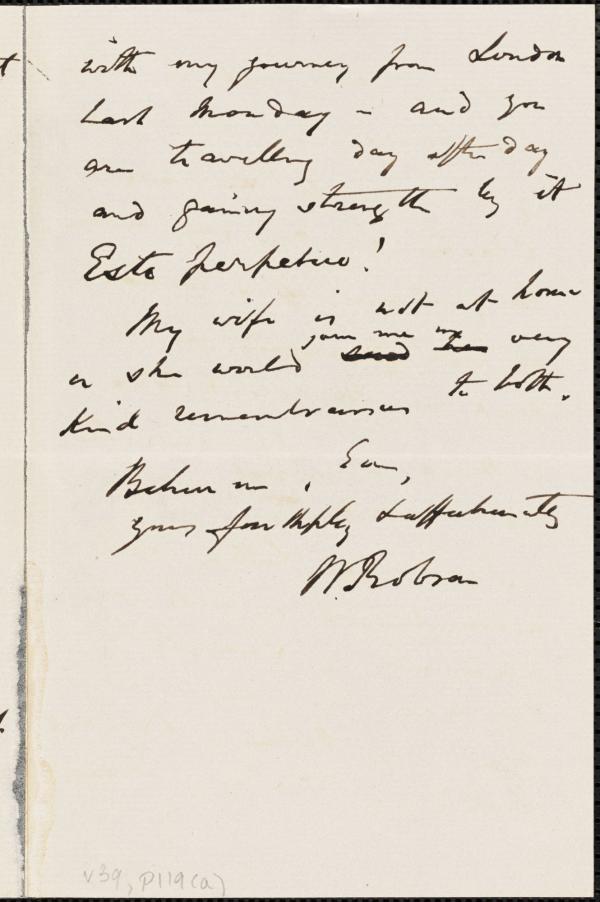 with my journey from London
last Monday - and you
are travelling day after day
and gaining strength by it
Esto perpetua!
My wife is not at home
join me in
or she would send her very
kind remembrances to both.
Believe me, Ever,
yours faithfully & affectionately
W. Robson
v39, p119(a)